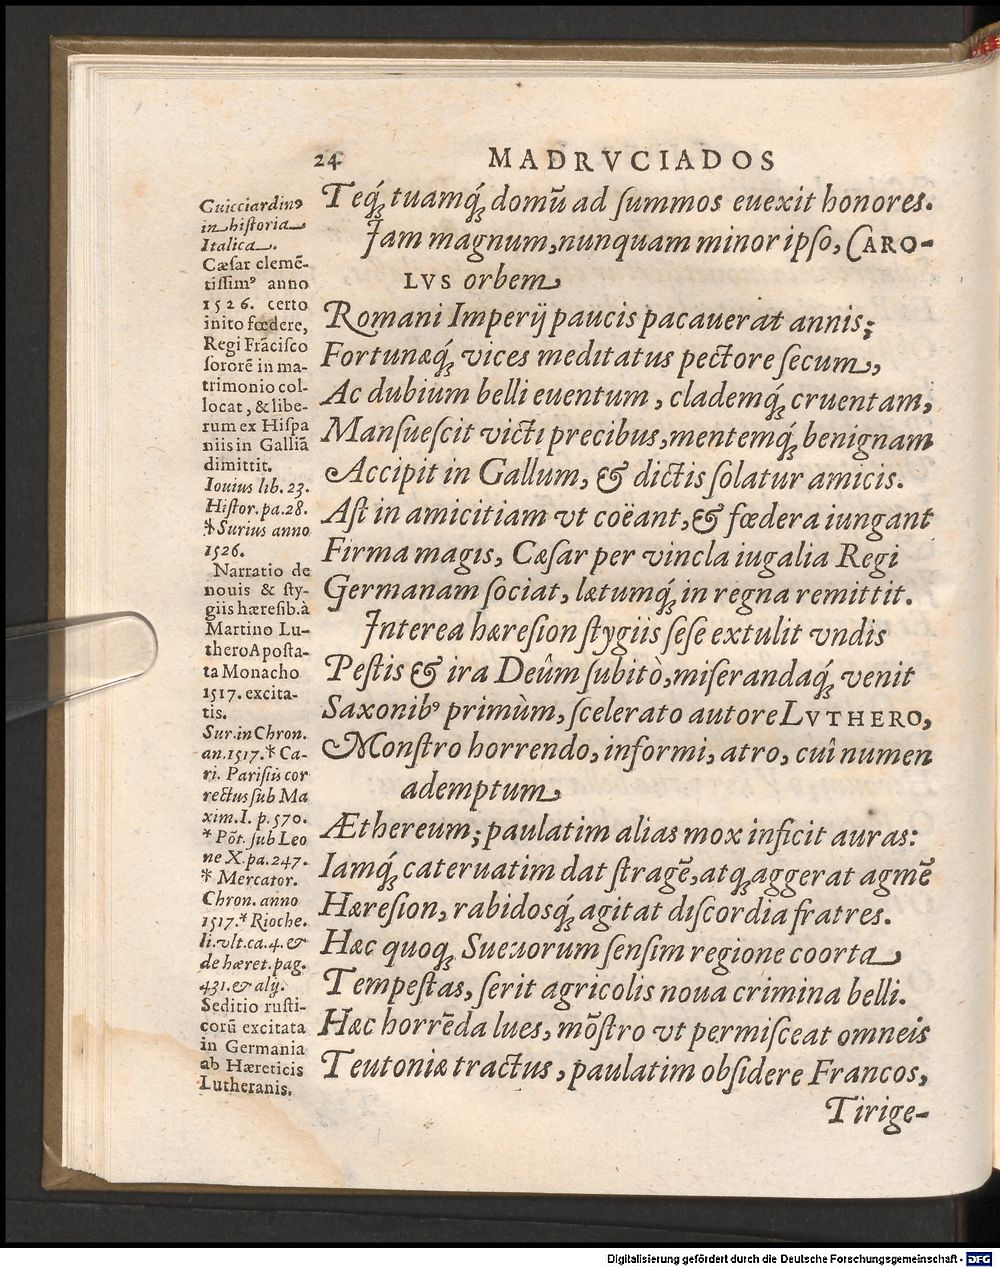 24 MADRVCIADOS
Teq́; tuamq́; domū ad ſummos euexit honores.
Jam magnum, nunquam minor ipſo, CARO-
LVS orbem
Romani Imperij paucis pacauerat annis;
Fortunæq́; vices meditatus pectore ſecum,
Ac dubium belli euentum, clademq́; cruentam,
Manſueſcit victi precibus, mentemq́; benignam
Accipit in Gallum, & dictis ſolatur amicis.
Aſt in amicitiam vt coëant, & fœdera iungant
Firma magis, Cæſar per vincla iugalia Regi
Germanam ſociat, lætumq́; in regna remittit.
Jnterea hæreſion ſtygiis ſeſe extulit vndis
Peſtis & ira Deûm ſubitò, miſerandaq́; venit
Saxonibꝰ primùm, ſcelerato autore LVTHERO,
Monſtro horrendo, informi, atro, cui numen
ademptum
Æthereum; paulatim alias mox inficit auras:
Iamq́; cateruatim dat ſtragē, atq; aggerat agmē
Hæreſion, rabidosq́; agitat diſcordia fratres.
Hæc quoq; Sueuorum ſenſim regione coorta
Tempeſtas, ſerit agricolis noua crimina belli.
Hæc horrēda lues, mōſtro vt permiſceat omneis
Teutoniæ tractus, paulatim obſidere Francos,
Tirige-
Guicciardinꝰ
in hiſtoria
Italica.
Cæſar clemē-
tiſſimꝰ anno
1526. certo
inito fœdere,
Regi Frāciſco
ſororē in ma-
trimonio col-
locat, & libe-
rum ex Hiſpa
niis in Galliā
dimittit.
Iouius lib. 23.
Hiſtor. pa. 28.
*Surius anno
1526.
Narratio de
nouis & ſty-
giis hæreſib. à
Martino Lu-
thero Apoſta-
ta Monacho
1517. excita-
tis.
Sur. in Chron.
an. 1517. * Ca-
ri. Pariſiis cor
rectus ſub Ma
xim. I. p. 570.
* Pōt. ſub Leo
ne X. pa. 247.
* Mercator.
Chron. anno
1517. * Rioche.
li. vlt. ca. 4. &
de hæret. pag.
431. & alij.
Seditio ruſti-
corū excitata
in Germania
ab Hæreticis
Lutheranis.
Digitalisierung gefördert durch die Deutsche Forschungsgemeinschaft - DFG